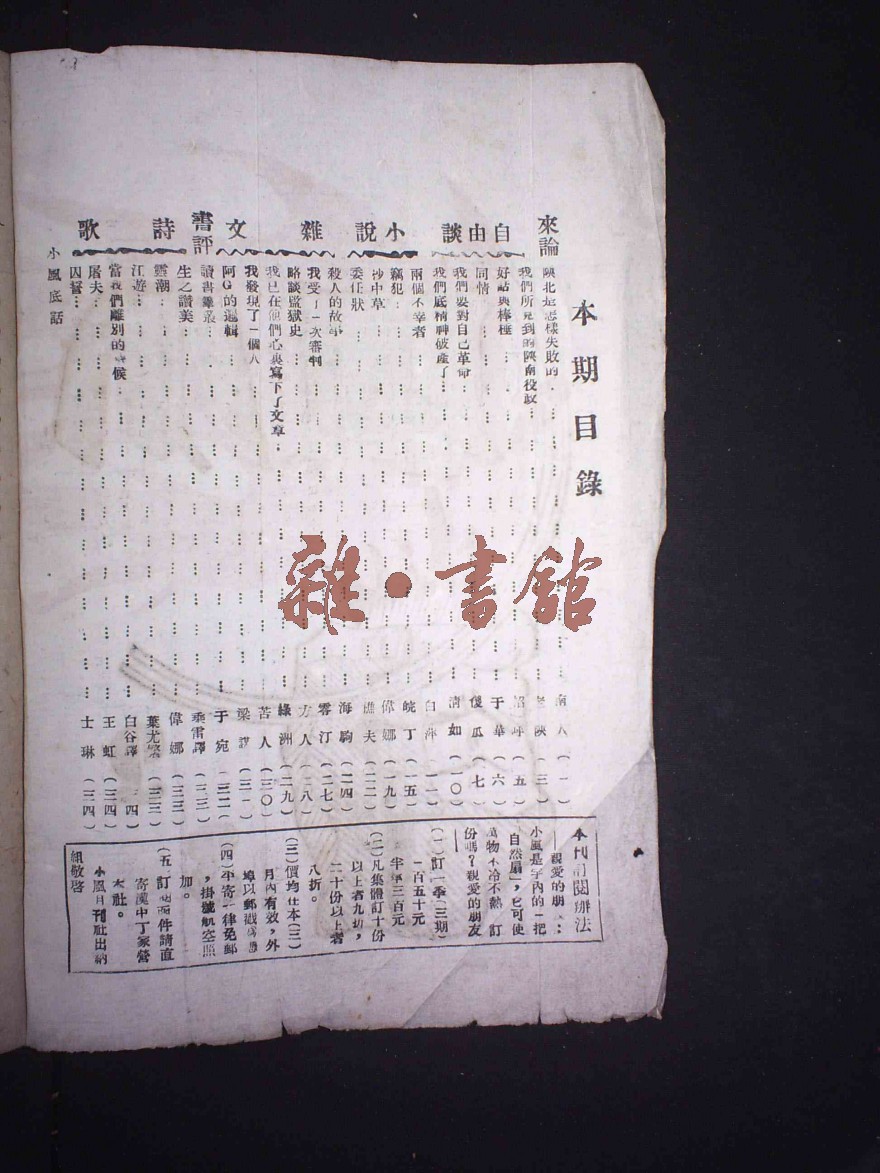 本期目錄
來論
陝北是怎樣失敗的 南人 (一)
我們所見到的陝南役政 老陝 (三)
自由談
好話與棒棰 (五)
同情 于華 (六)
我們要對自己革命 傻瓜 (七)
我們底精神破產了 清如 (一〇)
小說
兩個不幸者 白萍 (一一)
竊犯 皖丁 (一五)
抄中草 偉娜 (一九)
委任狀 樵夫 (二二)
雜文
殺人的故事 海駒 (二四)
我受了一次審判 零汀 (二七)
略談監獄史 方人 (二八)
我已在他們心與寫下了文章 綠洲 (二九)
我發現了一個人 苦人 (三〇)
阿G的邏輯 梁 (三一)
書評
讀書雜叢 于宛 (三二)
詩歌
生之讚美 乘雷譯 (三三)
靈潮 偉娜 (三三)
江遊 葉尤 (三三)
當我們離別的時候 白谷譯
屠夫 王虹 (三四)
囚督 士琳 (三四)
小風底話
本刊訂閱辦法
——親愛的朋
小風是宇內的一把
自然扇,它可使
萬物不冷不熱 訂
份嗎?親愛的朋友
(一)訂一季(三期)
一百五十元
半年三百元
(二)凡集體訂十份
以上者九折,
二十份以上者
八折。
(三)價均在本(三)
月內有效,外
埠以郵戳為憑
(四)平寄一律免郵
,掛號航空照
加。
(五)訂 函件請直
寄漢中丁家營
本社。
小風月刊社出納
組敬啓
雜·書館